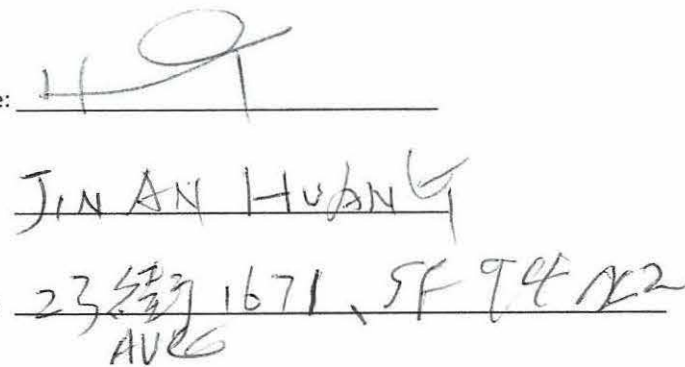 e:
JIN AN HUANG
23街 1671、SF 94122
AVE